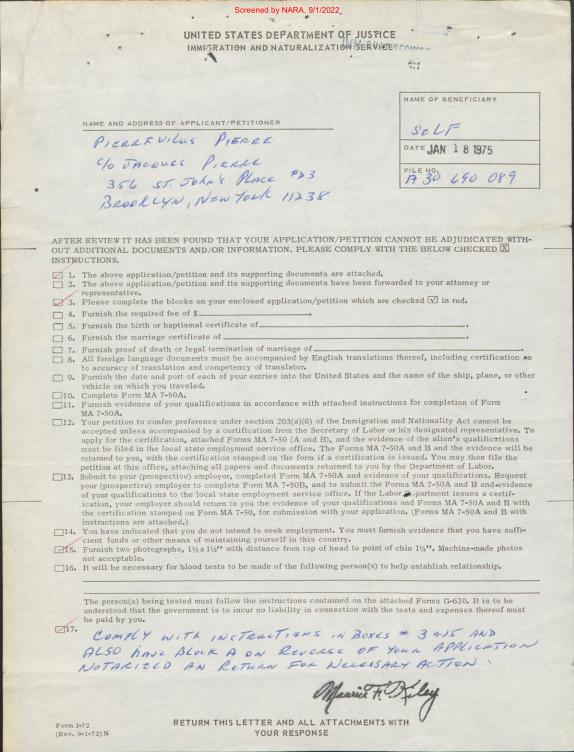 Screened by NARA, 9/1/2022
UNITED STATES DEPARTMENT OF JUSTICE
IMMIGRATION AND NATURALIZATION SERVICE
NAME OF BENEFICIARY
SELF
DATE JAN 18 1975
FILE NO.
A30 690 089
NAME AND ADDRESS OF APPLICANT/PETITIONER
PIERREVILUS PIERRE
c/o JACQUES PIERRE
356 ST. JOHN'S PLACE #D3
BROOKLYN, NEW YORK 11238
AFTER REVIEW IT HAS BEEN FOUND THAT YOUR APPLICATION/PETITION CANNOT BE ADJUDICATED WITH-
OUT ADDITIONAL DOCUMENTS AND/OR INFORMATION. PLEASE COMPLY WITH THE BELOW CHECKED X
INSTRUCTIONS.
1. The above application/petition and its supporting documents are attached.
2. The above application/petition and its supporting documents have been forwarded to your attorney or
representative.
3. Please complete the blocks on your enclosed application/petition which are checked ☑ in red.
4. Furnish the required fee of $
5. Furnish the birth or baptismal certificate of
6. Furnish the marriage certificate of
7. Furnish proof of death or legal termination of marriage of
8. All foreign language documents must be accompanied by English translations thereof, including certification as
to accuracy of translation and competency of translator.
9. Furnish the date and port of each of your entries into the United States and the name of the ship, plane, or other
vehicle on which you traveled.
10. Complete Form MA 7-50A.
11. Furnish evidence of your qualifications in accordance with attached instructions for completion of Form
MA 7-50A.
12. Your petition to confer preference under section 203(a)(6) of the Immigration and Nationality Act cannot be
accepted unless accompanied by a certification from the Secretary of Labor or his designated representative. To
apply for the certification, attached Forms MA 7-50 (A and B), and the evidence of the alien's qualifications
must be filed in the local state employment service office. The Forms MA 7-50A and B and the evidence will be
returned to you, with the certification stamped on the form if a certification is issued. You may then file the
petition at this office, attaching all papers and documents returned to you by the Department of Labor.
13. Submit to your (prospective) employer, completed Form MA 7-50A and evidence of your qualifications. Request
your (prospective) employer to complete Form MA 7-50B, and to submit the Forms MA 7-50A and B and evidence
of your qualifications to the local state employment service office. If the Labor Department issues a certif-
ication, your employer should return to you the evidence of your qualifications and Forms MA 7-50A and B with
the certification stamped on Form MA 7-50, for submission with your application. (Forms MA 7-50A and B with
instructions are attached.)
14. You have indicated that you do not intend to seek employment. You must furnish evidence that you have suffi-
cient funds or other means of maintaining yourself in this country.
15. Furnish two photographs, 1½ x 1½" with distance from top of head to point of chin 1¼". Machine-made photos
not acceptable.
16. It will be necessary for blood tests to be made of the following person(s) to help establish relationship.
The person(s) being tested must follow the instructions contained on the attached Forms G-620. It is to be
understood that the government is to incur no liability in connection with the tests and expenses thereof must
be paid by you.
17. COMPLY WITH INSTRUCTIONS IN BOXES # 3 +15 AND
ALSO HAVE BLOCK A ON REVERSE OF YOUR APPLICATION
NOTARIZED AN RETURN FOR NECESSARY ACTION
Maurice F. Kiley
Form I-72
(Rev. 9-1-72) N
RETURN THIS LETTER AND ALL ATTACHMENTS WITH
YOUR RESPONSE